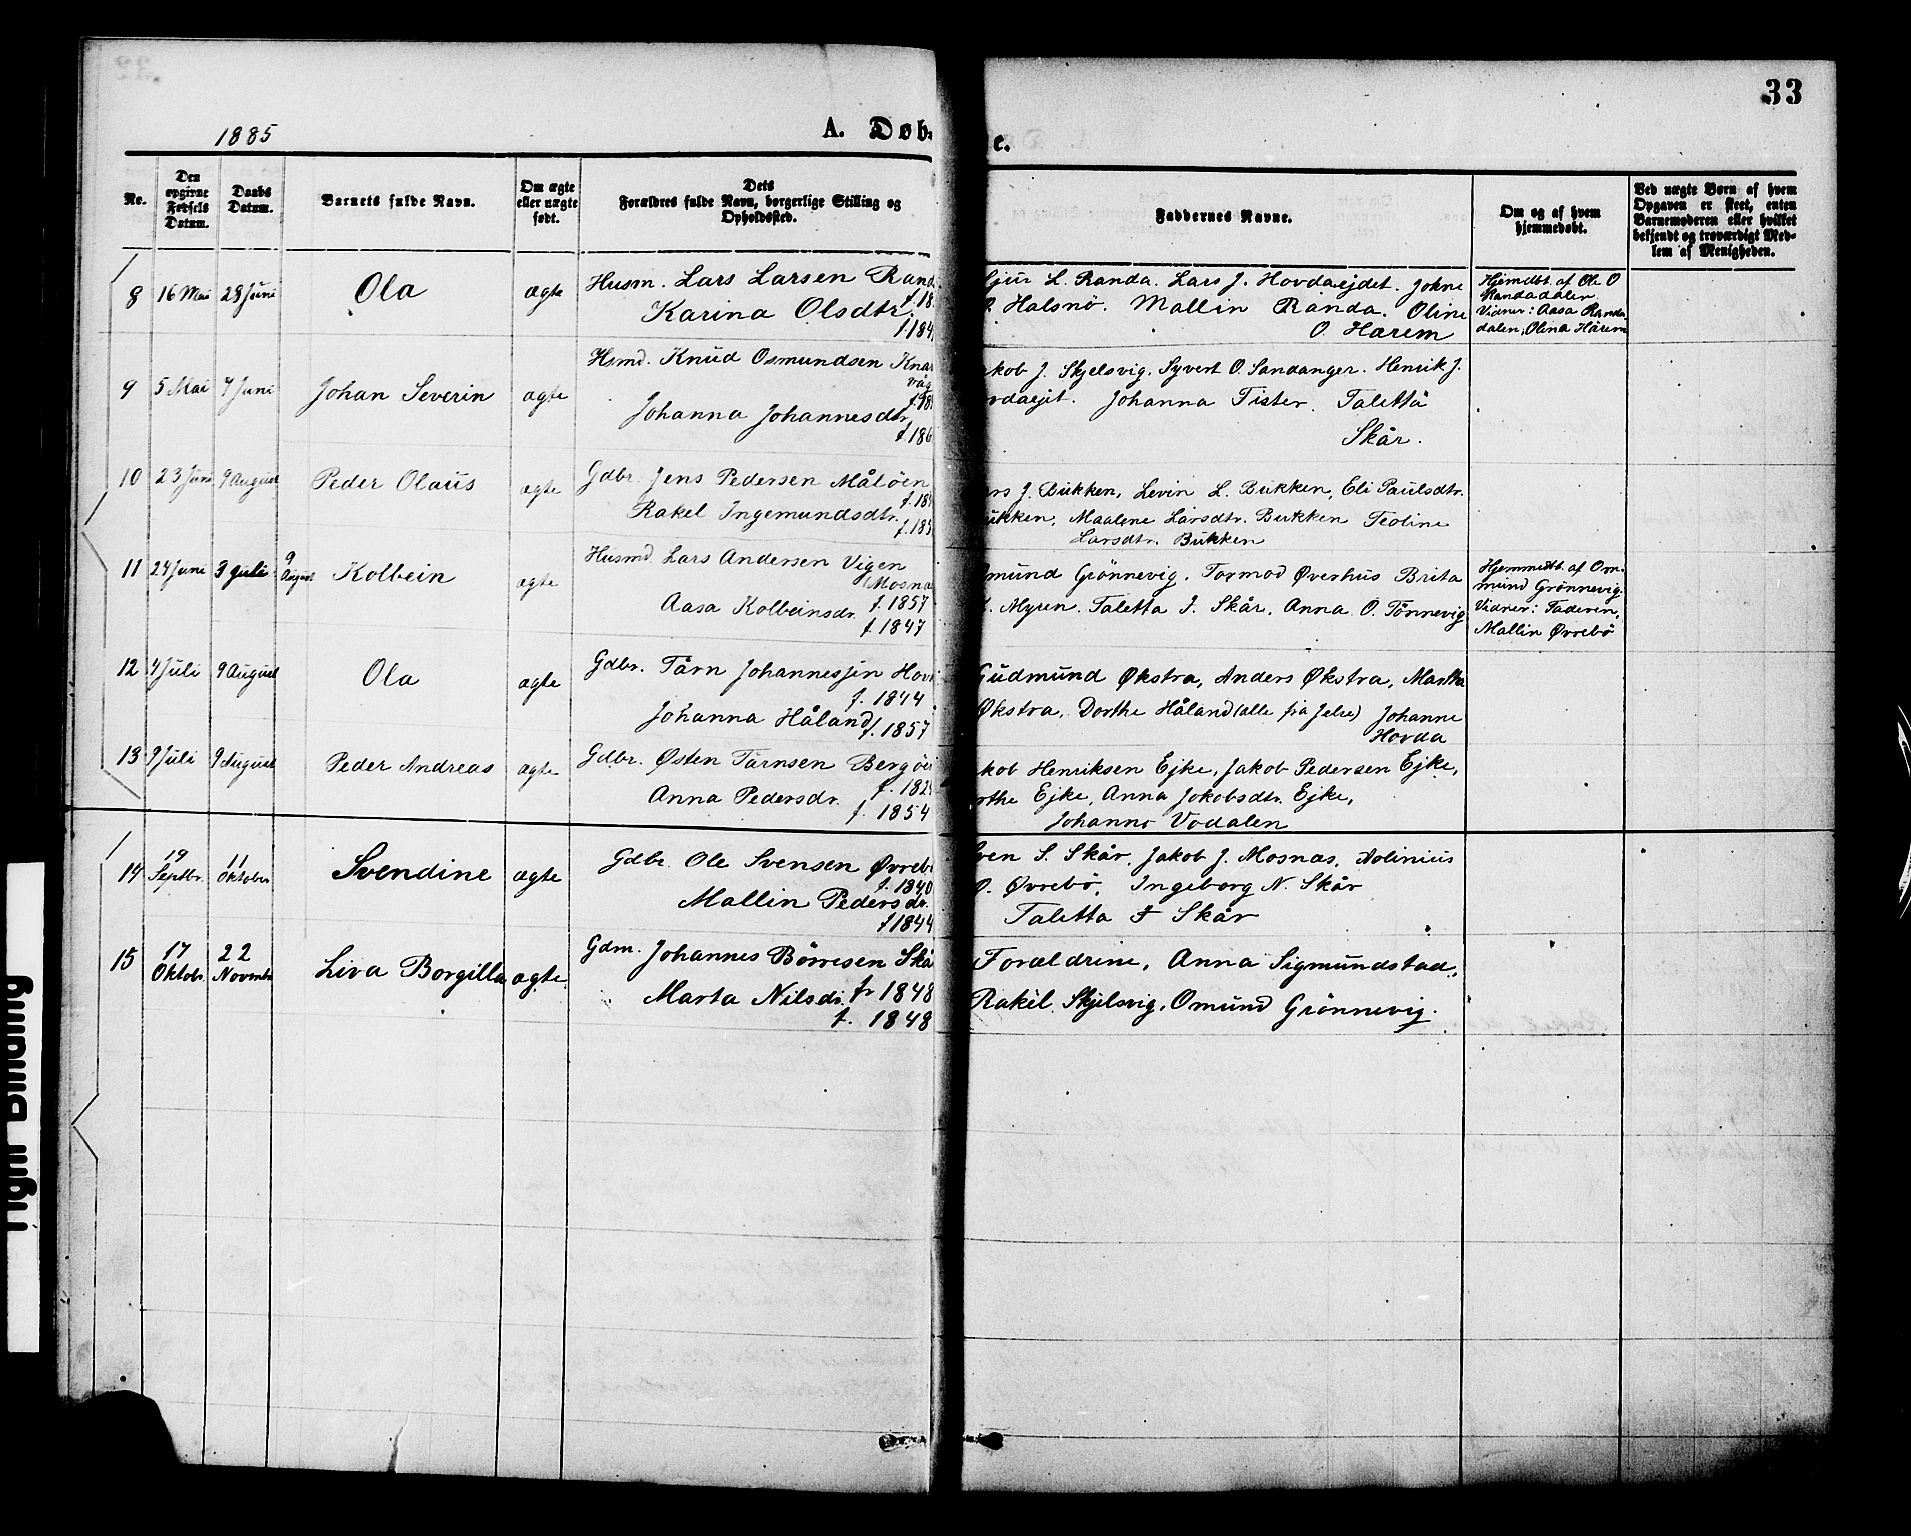 33
1885
A. Døb-
e.
No.
Den opgivne Fødsels Datum.
Daabs Datum.
Barnets fulde Navn.
Om ægte eller uægte født.
Dets Forældres fulde Navn, borgerlige Stilling og Opholdssted.
Faddernes Navne.
Om og af hvem hjemmedøbt.
Ved uægte Børn af hvem Opgaven er skeet, enten Barnemoderen eller hvilket bekjendt og troværdigt Medlem af Menigheden.
8 16 Mai 28 Juni Ola ægte Husm. Lars Larsen Rand
f. 18
Karina Olsdtr.
f. 184
L. Randa. Lars J. Hovdaejdet. Johne
Halsnö. Mallin Randa. Oline
O. Harem
Hjemdbt. af Ole O
Randadalen
Vidner: Aasa Randa
dalen, Olena Härem
9 5 Mai 7 Juni Johan Severin ægte Hsmd. Knud Osmundsen Knar
vag
f. 18
Johanna Johannesdtr.
f. 186
akob J. Skjelsvig. Syvert O. Sandanger. Henrik J.
vdaejet. Johanna Tister. Taletta
Skår.
10 23 Juni 9 August Peder Olaus ægte Gdbr. Jens Pedersen Måløen
f. 18
Rakel Ingemundsdtr.
f. 185
ars J. Bukken, Levin L. Bukken, Eli Paulsdtr.
ukken, Maalene Larsdtr. Bukken Teoline
Larsdtr. Bukken
11 24 Juni 3 Juli 9 August Kolbein ægte Husmd. Lars Andersen Vigen
Mosna
f. 1857
Aasa Kolbeinsdr.
f. 1847
mund Grönnevig. Tormod Øverhus Brita
Myren. Taletta J. Skår. Anna O. Tönnevig
Hjemmedtb. af Om-
mund Grönnevig.
Vidner: Faderen,
Mallin Øvrebö
12 4 Juli 9 August Ola ægte Gdbr. Tårn Johannessen Hov
f. 1844
Johanna Håland
f. 1857
Gudmund Økstra, Anders Økstra, Martha
Økstra, Dorthe Håland (alle fra Jelse) Johanne
Hovda
13 9 Juli 9 August Peder Andreas ægte Gdbr. Østen Tårnsen Bergöe
f. 182
Anna Pedersdr.
f. 1854
akob Henriksen Ejke, Jakob Pedersen Ejke,
rthe Ejke, Anna Jokobsdtr. Ejke,
Johanne Vodalen
14 19 Septbr. 11 Oktober Svendine ægte Gdbr. Ole Svensen Øvrebö
f. 1840
Mallin Pedersdr.
f 1844
Sven S. Skår, Jakob J. Mosnæs, Aolinius
O. Øvrebö, Ingeborg N. Skår
Taletta J Skår
15 17 Oktobr. 22 Novmbr Liva Borgilla ægte Gdm. Johannes Börresen Skå
f. 1848
Marta Nilsdr.
f. 1848
Forældrene, Anna Sigmundstad,
Rakel Skjelsvig, Omund Grönnevig.